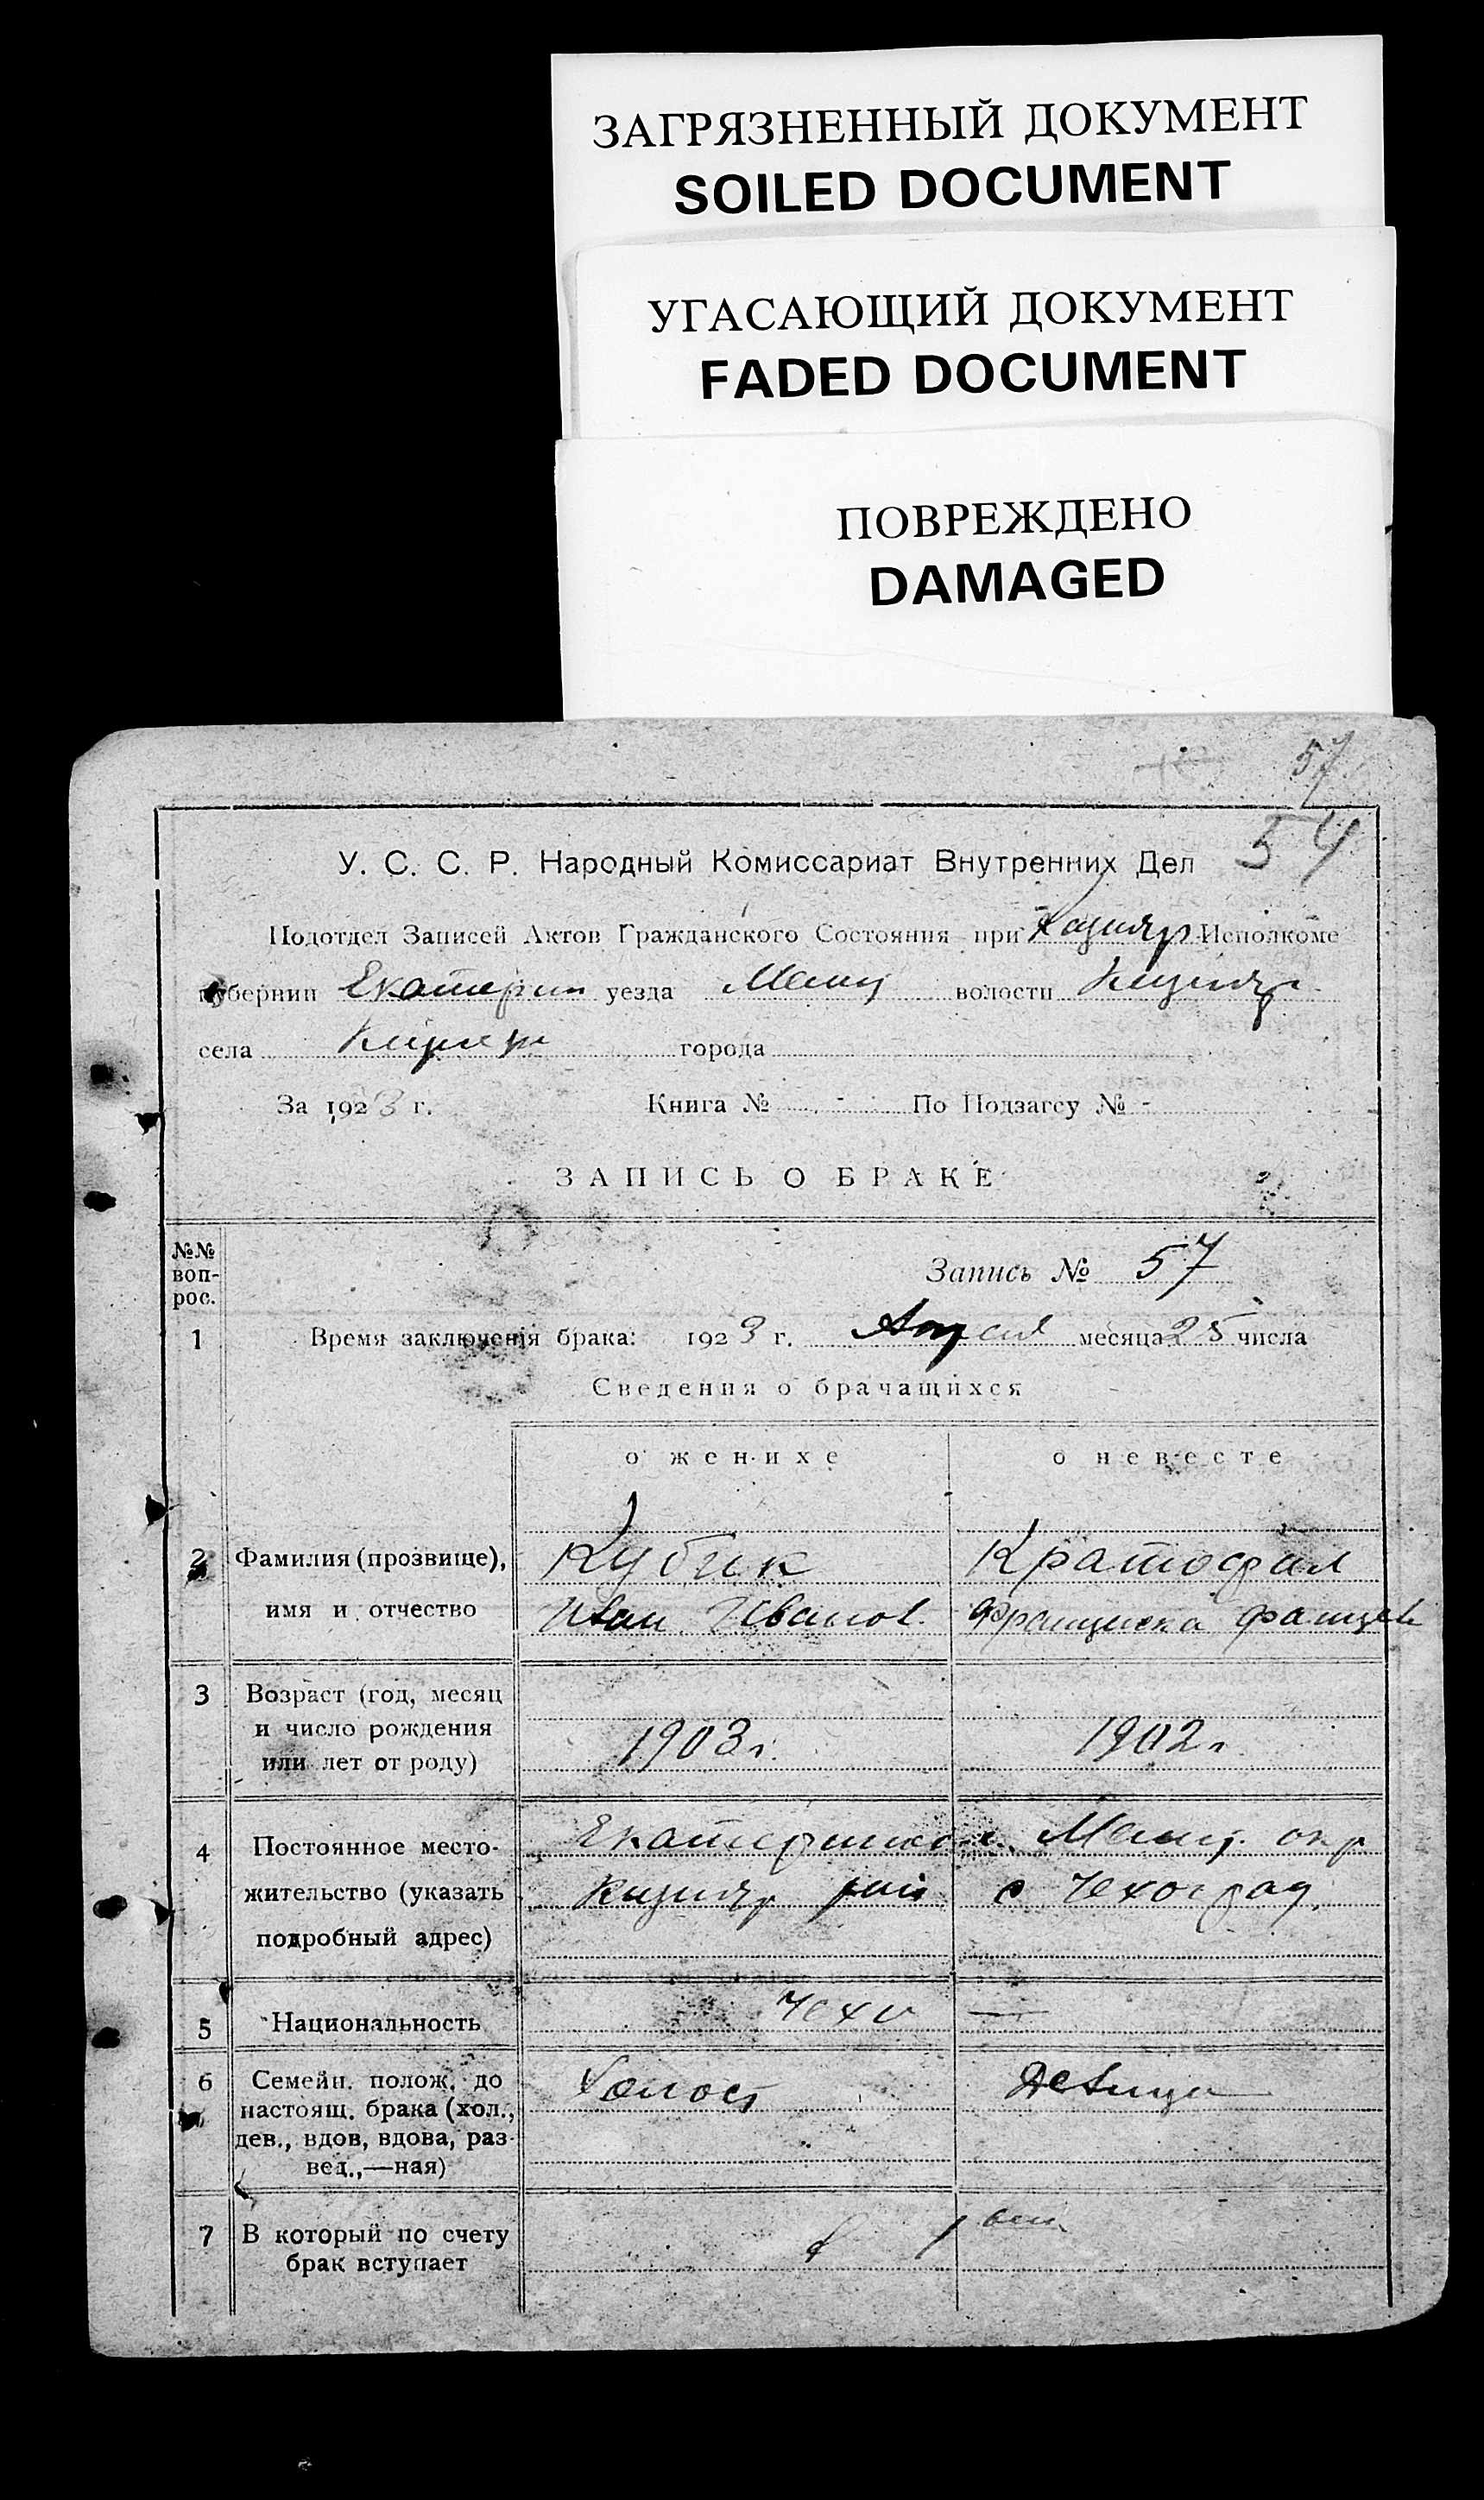 ЗАГРЯЗНЕННЫЙ ДОКУМЕНТ
SOILED DOCUMENT
УГАСАЮЩИЙ ДОКУМЕНТ
FADED DOCUMENT
ПОВРЕЖДЕНО
DAMAGED
57
54
У. С. С. Р. Народный Комиссариат Внутренних Дел
Подотдел Записей Актов Гражданского Состояния при Исполкоме
губернии Екатерин уезда волости
села города
За 1923 г. Книга № - По Подзагсу № -
ЗАПИСЬ О БРАКЕ
№№ воп-
рос.
Запись № 57
1 Время заключенія брака: 1923 г. Апрел месяца 25 числа
Сведения о брачащихся
о женихе о невесте
2 Фамилия (прозвище), Кубик Кратофил
имя и отчество Иван Иванов. Франциска
3 Возраст (год, месяц
и число рождения 1903 г. 1902 г.
или лет от роду)
4 Постоянное место- окр
жительство (указать с Чехоград
подробный адрес)
5 Национальность Чехи —
6 Семейн. полож. до Холост Девица
настоящ. брака (хол.,
дев., вдов, вдова, раз-
вед.,—ная)
7 В который по счету в 1
брак вступает